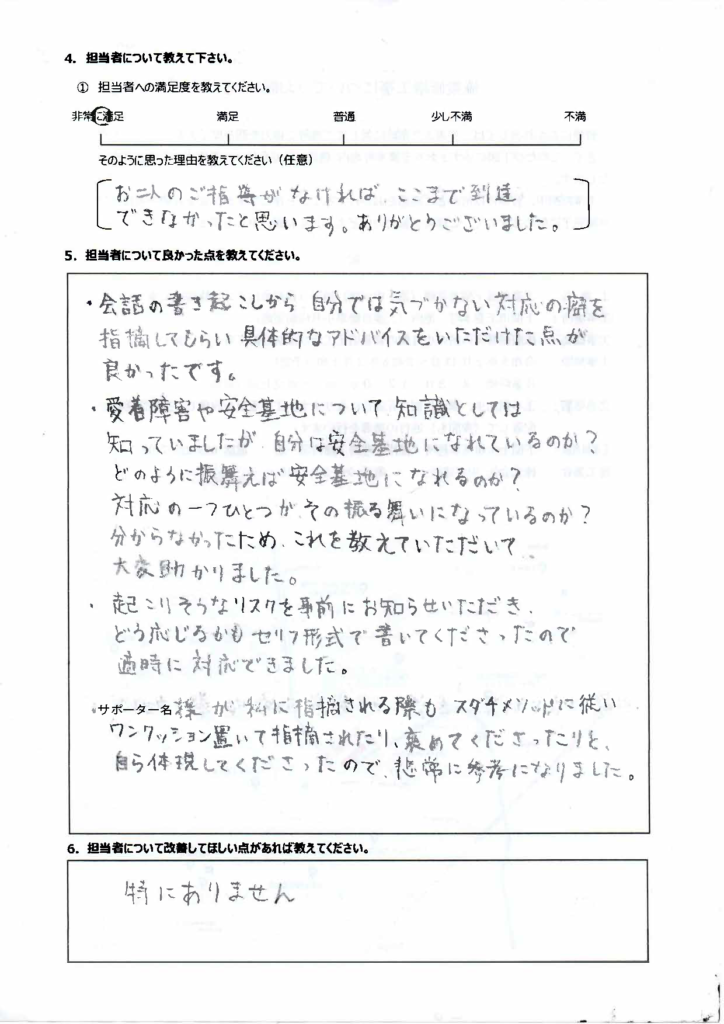 4．担当者について教えて下さい。
① 担当者への満足度を教えてください。
非常に満足 満足 普通 少し不満 不満
そのように思った理由を教えてください（任意）
お二人のご指導がなければ、ここまで到達
できなかったと思います。ありがとうございました。
5．担当者について良かった点を教えてください。
・会話の書き起こしから 自分では気づかない対応の癖を
指摘してもらい 具体的なアドバイスをいただけた点が
良かったです。
・愛着障害や安全基地について 知識としては
知っていましたが、自分は安全基地になれているのか？
どのように振舞えば安全基地になれるのか？
対応の一つひとつが その振る舞いになっているのか？
分からなかったため、これを教えていただいて
大変助かりました。
・起こりそうなリスクを事前にお知らせいただき、
どう応じるかも セリフ形式で書いてくださったので
適時に対応できました。
・サポーター名様が私に指摘される際も スダチメソッドに従い
ワンクッション置いて指摘されたり、褒めてくださったりと、
自ら体現してくださったので、非常に参考になりました。
6．担当者について改善してほしい点があれば教えてください。
特にありません